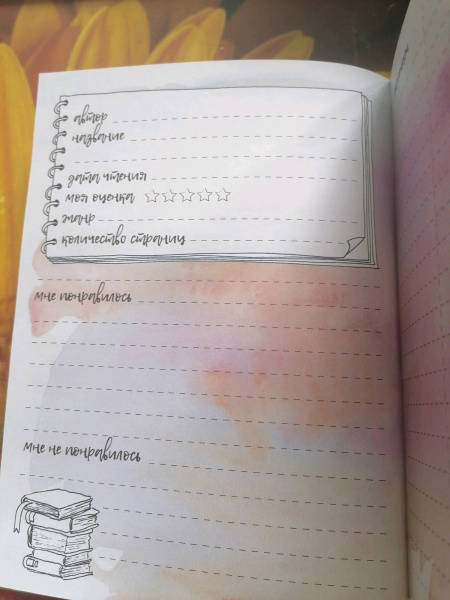 автор
название
дата чтения
моя оценка
жанр
количество страниц
мне понравилось
мне не понравилось